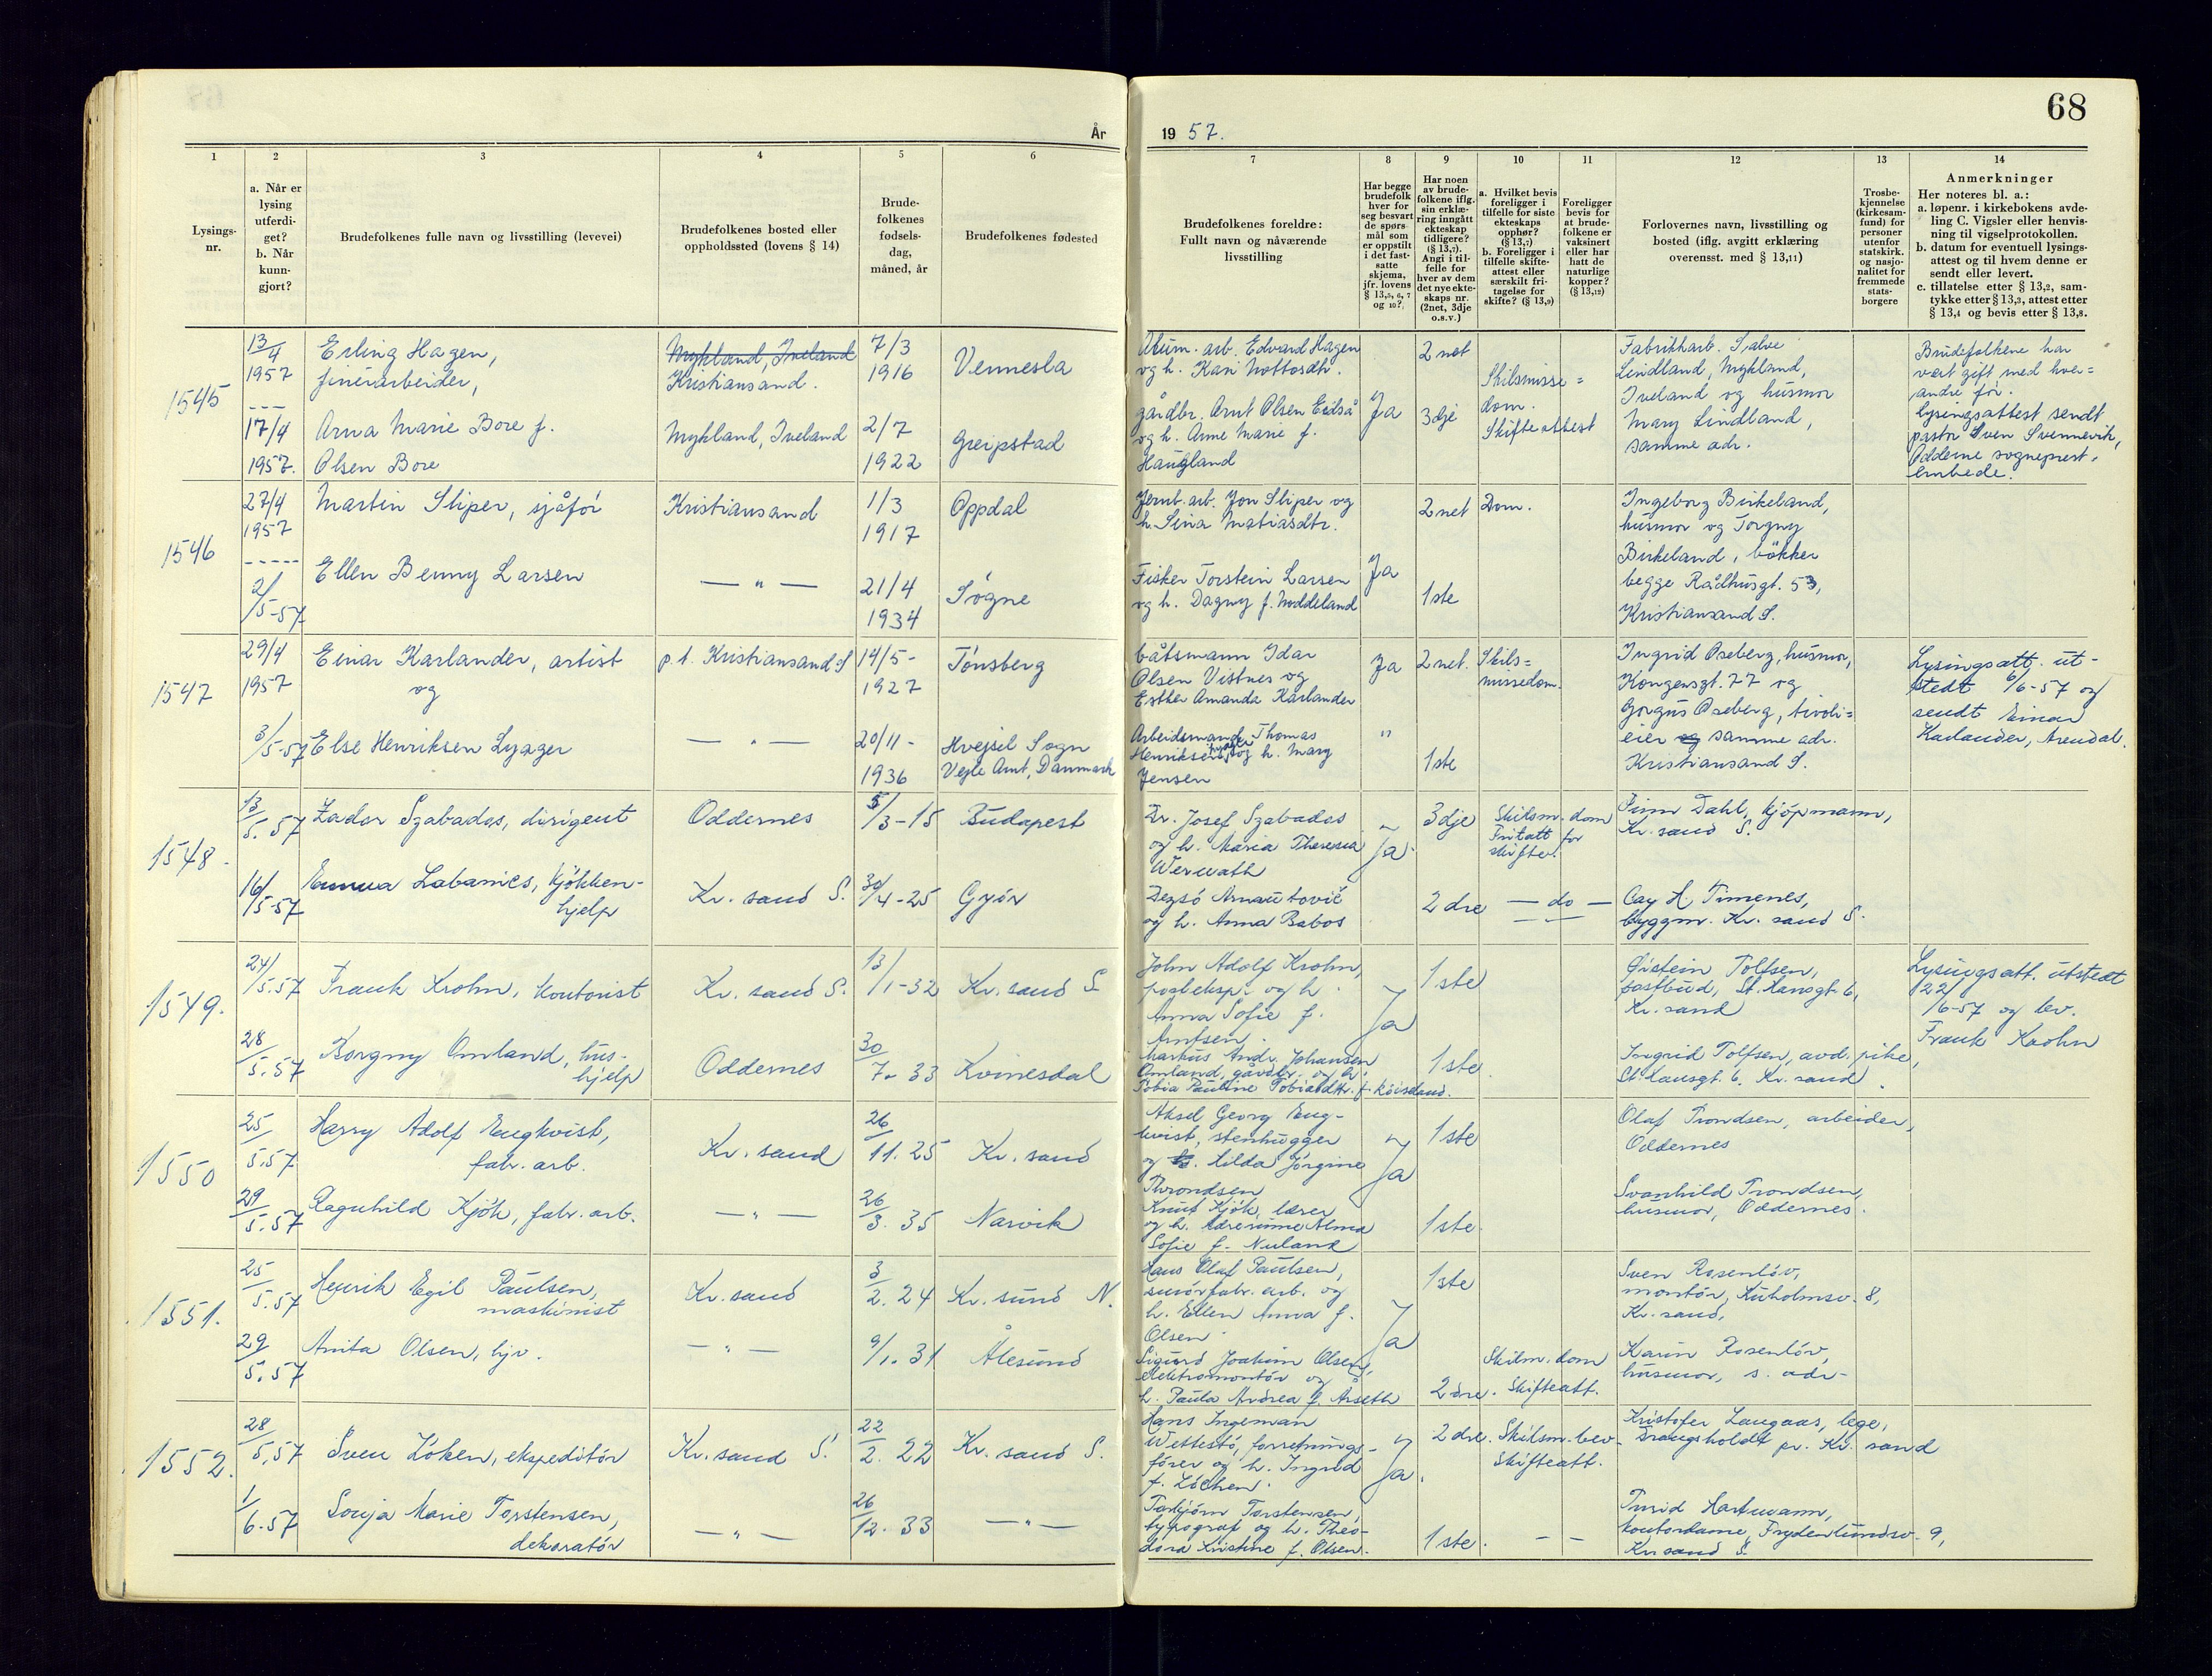 68
År
19 57.
1
2
3
4
5
6
7
8
9
10
11
12
13
14
Lysings-
nr.
a. Når er
lysing
utferdi-
get?
b. Når
kunn-
gjort?
Brudefolkenes fulle navn og livsstilling (levevei)
Brudefolkenes bosted eller
oppholdssted (lovens § 14)
Brude-
folkenes
fødsels-
dag,
måned, år
Brudefolkenes fødested
Brudefolkenes foreldre:
Fullt navn og nåværende
livsstilling
Har begge
brudefolk
hver for
seg besvart
de spørs-
mål som
er oppstilt
i det fast-
satte
skjema,
jfr. lovens
§ 13,5, 6, 7
og 10?
Har noen
av brude-
folkene iflg.
sin erklæ-
ring inngått
ekteskap
tidligere?
(§ 13,7).
Angi i til-
felle for
hver av dem
det nye ekte-
skaps nr.
(2net, 3dje
o.s.v.)
a. Hvilket bevis
foreligger i
tilfelle for siste
ekteskaps
opphør?
(§ 13,7)
b. Foreligger i
tilfelle skifte-
attest eller
særskilt fri-
tagelse for
skifte? (§ 13,9)
Foreligger
bevis for
at brude-
folkene er
vaksinert
eller har
hatt de
naturlige
kopper?
(§ 13,12)
Forlovernes navn, livsstilling og
bosted (iflg. avgitt erklæring
overensst. med § 13,11)
Trosbe-
kjennelse
(kirkesam-
fund) for
personer
utenfor
statskirk.
og nasjo-
nalitet for
fremmede
stats-
borgere
Anmerkninger
Her noteres bl. a.:
a. løpenr. i kirkebokens avde-
ling C. Vigsler eller henvis-
ning til vigselprotokollen.
b. datum for eventuell lysings-
attest og til hvem denne er
sendt eller levert.
c. tillatelse etter § 13,2, sam-
tykke etter § 13,3, attest etter
§ 13,4 og bevis etter § 13,8.
1545
13/4
1957
---
17/4
1957.
Erling Hagen,
finérarbeider,
Arna Marie Bore f.
Olsen Bore
Mykland, Iveland
Kristiansand.
Mykland, Iveland
7/3
1916
2/7
1922
Vennesla
Greipstad
Alum. arb. Edvard Hagen
og h. Kari Nottosdtr.
gårdbr. Arnt Olsen Eidså
og h. Anne Marie f.
Haugland
Ja
2 net
3dje
Skilsmisse=
dom.
Skifteattest
Fabrikkarb. Salve
Lindland, Mykland,
Iveland og husmor
Mary Lindland,
samme adr.
Brudefolkene har
vært gift med hver=
andre før.
Lysingsattest sendt
pastor Sven Svennevik,
Oddernes sogneprest-
embede.
1546
27/4
1957
-----
2/
/5-57
Martin Sliper, sjåfør
Ellen Benny Larsen
Kristiansand
— " —
1/3
1917
21/4
1934
Oppdal
Søgne
Jernb. arb. Jon Sliper og
h. Sina Matiasdtr.
Fisker Torstein Larsen
og h. Dagny f. Noddeland
Ja
2 net
1ste
Dom.
Ingeborg Birkeland,
husmor og Torgny
Birkeland, bøkker
begge Rådhusgt. 53,
Kristiansand S.
1547
29/4
1957
3/5-57
Einar Karlander, artist
og
Else Henriksen Lyager
p.t. Kristiansand S
— " —
14/5-
1927
20/11-
1936
Tønsberg
Hvejsel Sogn
Vejle Amt, Danmark
båtsmann Idar
Olsen Vistnes og
Esther Amanda Karlander
Arbeidsmand Thomas
Henriksen Lyager og h. Mary
Jensen
Ja
"
2 net.
1ste
Skils=
missedom.
Ingrid Oseberg, husmor,
Kongensgt. 77 og
Gorgus Oseberg, tivoli=
eier og samme adr.
Kristiansand S.
Lysingsatt. ut-
stedt 6/6-57 og
sendt Einar
Karlander, Arendal.
1548.
13/5.57
16/5-57
Zador Szabados, dirigent
Emma Labanics, kjøkken-
hjelp
Oddernes
Kr. sand S.
5/3-15
30/4-25
Budapest
Győr
Dr. Josef Szabados
og h. Maria Theresia
Werwath
Dezsö Arnautovič
og h. Anna Babos
Ja.
3dje
2 dre
Skilsm. dom
Fritatt for
skifte.
— do —
— " —
Finn Dahl, kjøpmann,
Kr. sand S.
Cay H. Timenes,
byggm. Kr. sand S.
1549.
24/5.57
28/5.57
Frank Krohn, kontorist
Borgny Omland, hus-
hjelp
Kr. sand S.
Oddernes
13/1-32
30/7. 33
Kr. sand S
Kvinesdal
John Adolf Krohn,
posteksp. og h.
Anna Sofie f.
Arntsen.
Markus Andr. Johansen
Omland, gårdbr. og h.
Tobia Pauline Tobiasdtr. f.
Ja
1ste
1ste.
Øistein Tolfsen,
postbud, St. Hansgt. 6,
Kr. sand
Ingrid Tolfsen, avd. pike,
St. Hansgt. 6, Kr. sand.
Lysingsatt. utstedt
22/6-57 og lev.
Frank Krohn
1550
25/5.57
29/5.57
Harry Adolf Engkvist,
fabr. arb.
Ragnhild Kjøk, fabr. arb.
Kr. sand
— " —
26/11. 25
26/3. 35
Kr. sand
Narvik
Aksel Georg Eng-
kvist, stenhugger
og h. Hilda Jørgine
Throndsen
Knut Kjøk, lærer
og h. lærerinne Alma
Sofie f. Nuland
Ja
1ste
1ste.
Olaf Trondsen, arbeider,
Oddernes
Svanhild Trondsen,
husmor, Oddernes.
1551.
25/5.57
29/5.57
Henrik Egil Paulsen,
maskinist
Anita Olsen, hjv.
Kr. sand
— " —
3/2. 24
9/1. 31
Kr. sund N.
Ålesund
Hans Olaf Paulsen,
smørfabr. arb. og
h. Ellen Anna f.
Olsen.
Sigurd Joakim Olsen,
elektromontør og
h. Paula Andrea f. Årseth
Ja
1ste
2 dre.
Skilsm. dom
Skifteatt.
Sven Rosenløv,
montør, Kuholmsv. 8,
Kr. sand,
Karin Rosenløv,
husmor, s. adr.
1552.
28/5.57
1/6.57
Sven Løken, ekspeditør
Sonja Marie Torstensen,
dekoratør
Kr. sand S.
— " —
22/2. 22
26/12. 33
Kr. sand S.
— " —
Hans Ingeman
Wettestø, forretnings-
fører og h. Ingrid
f. Løchen.
Torbjørn Torstensen,
typograf og h. Theo-
dora Kristine f. Olsen.
Ja.
2 dre.
1ste.
Skilsm. bev.
Skifteatt.
— —
Kristofer Langaas, lege,
Strangsholdt pr. Kr. sand
Turid Hartmann,
kontordame, Frydenlundsv. 9,
Kr. sand S.